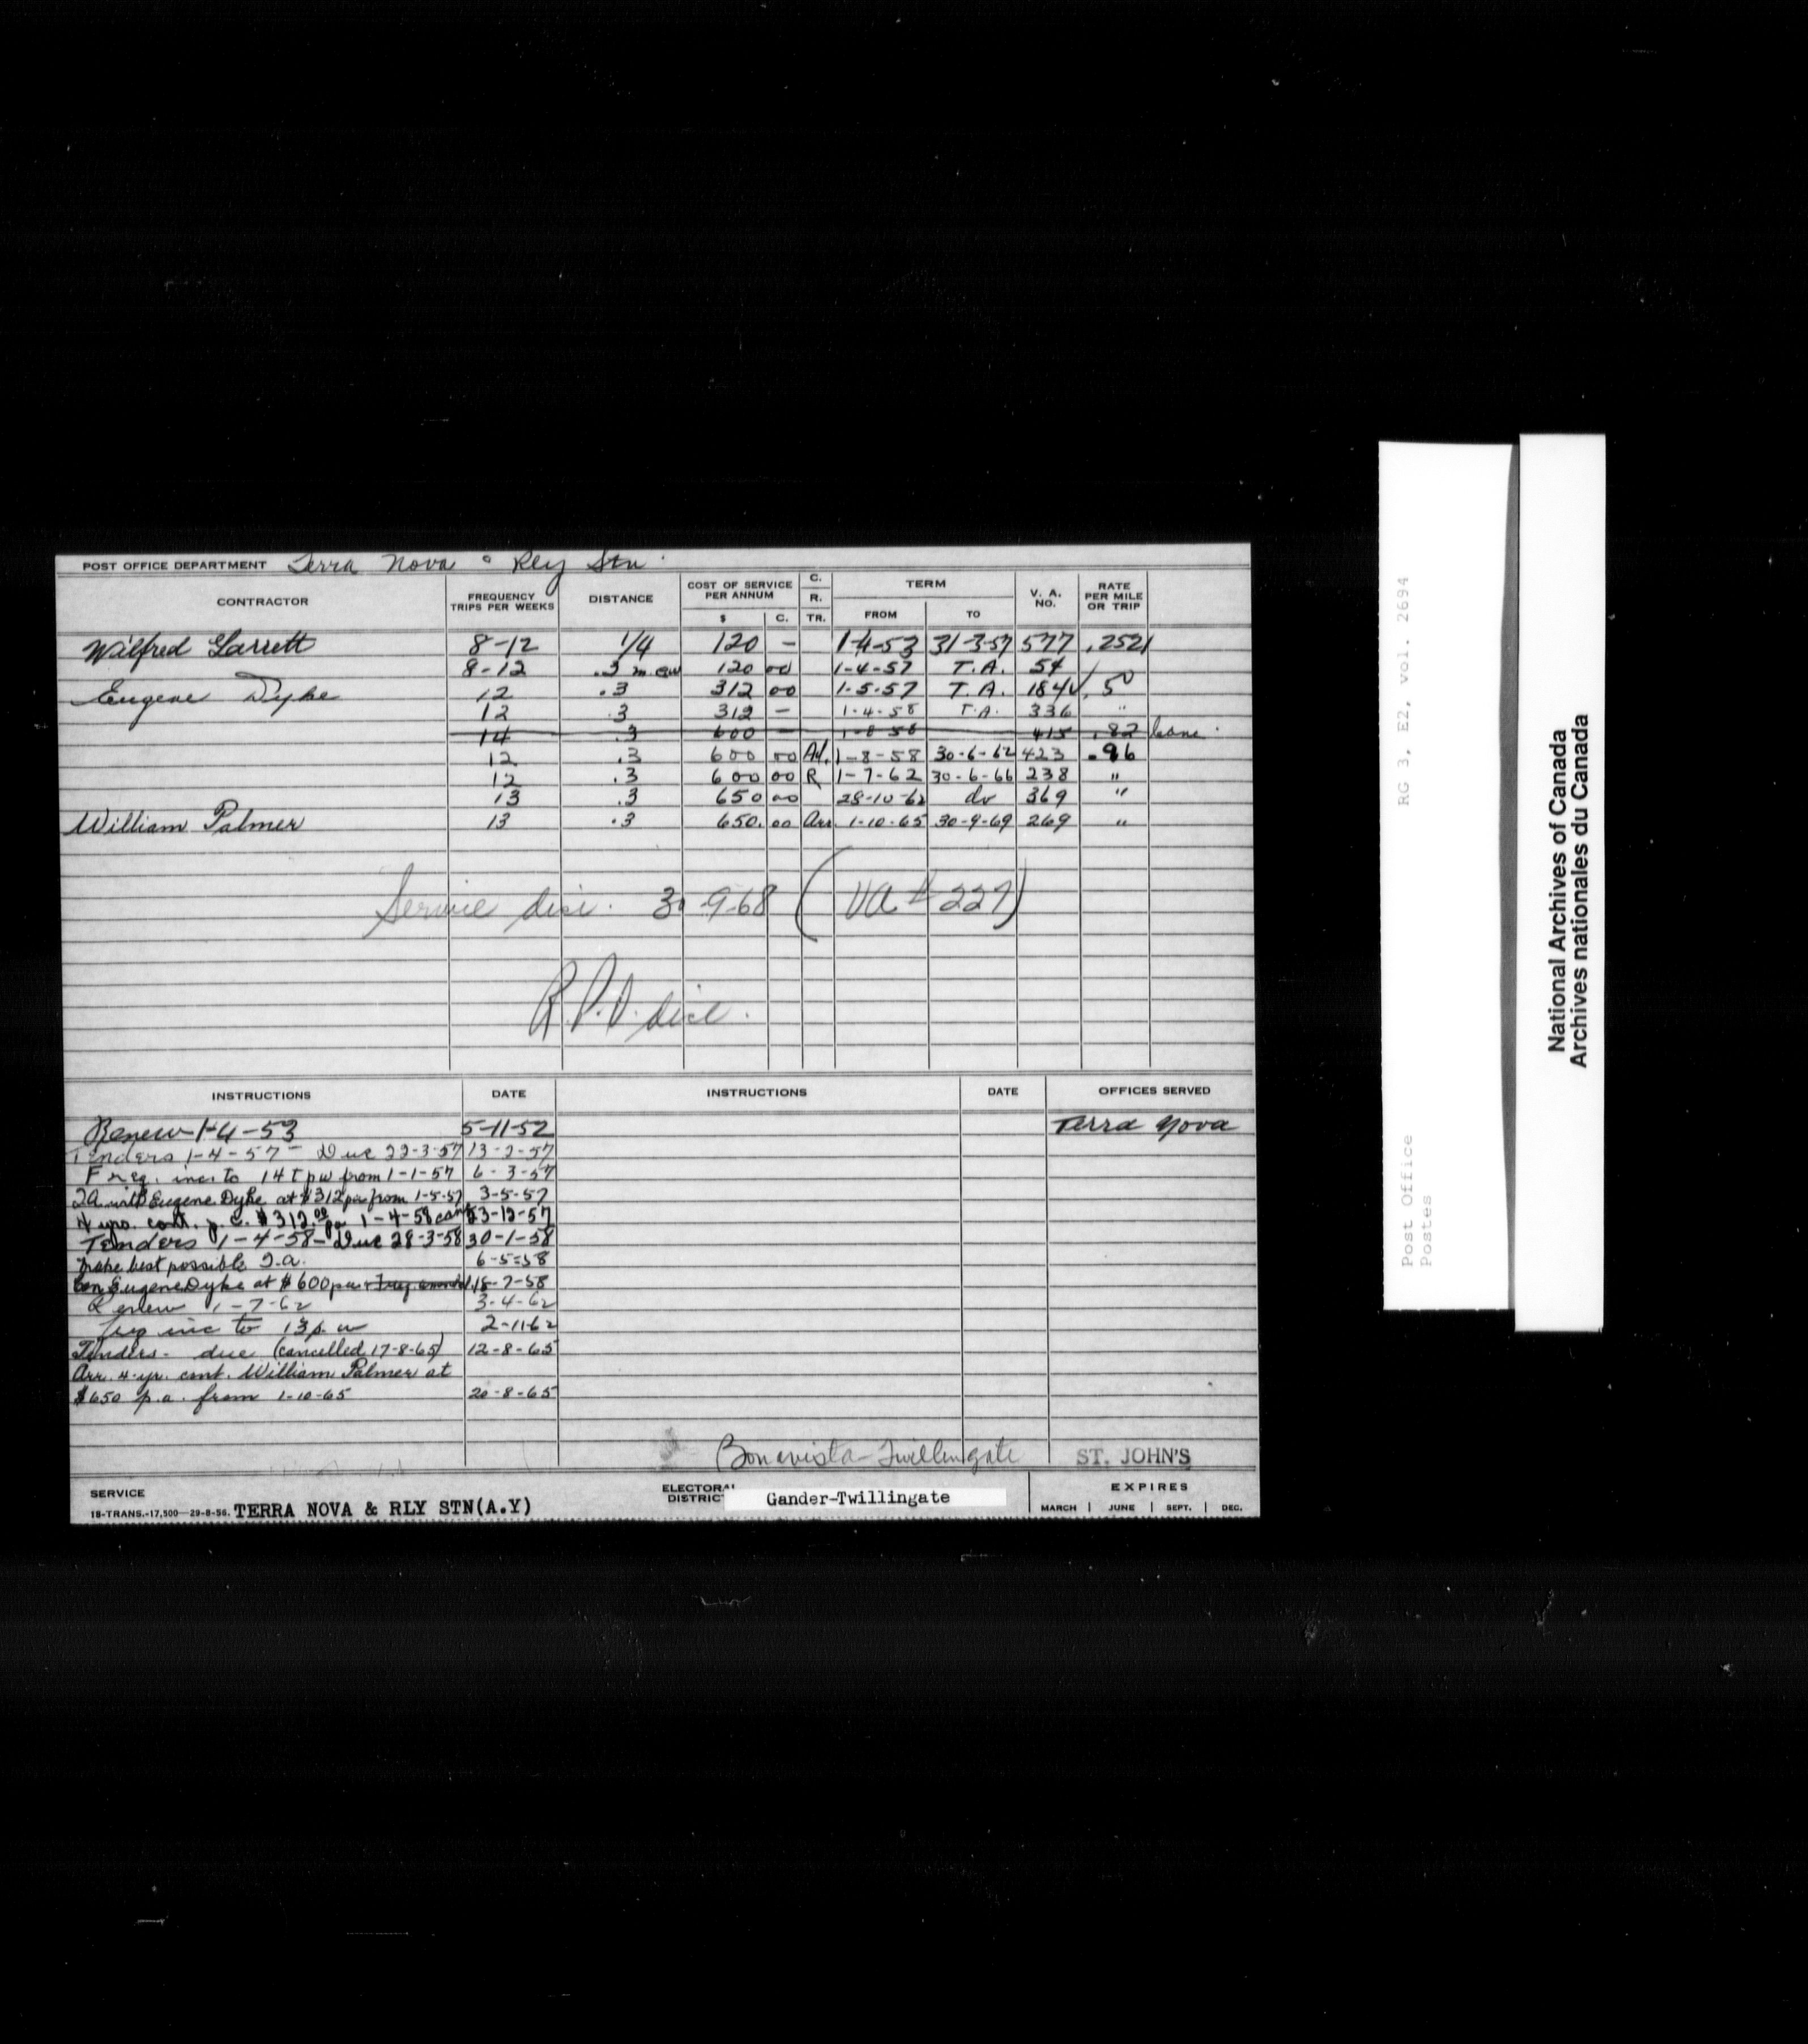 POST OFFICE DEPARTMENT Terra Nova & Rly Stn
CONTRACTOR FREQUENCY TRIPS PER WEEKS DISTANCE COST OF SERVICE PER ANNUM $ C. C. R. TR. TERM FROM TO V. A. NO. RATE PER MILE OR TRIP
Wilfred Garrett 8-12 1/4 120 - 1-4-53 31-3-57 577 .2521
8-12 .3 120 00 1-4-57 T.A. 54
Eugene Dyke 12 .3 312 00 1-5-57 T.A. 184 .50
12 .3 312 - 1-4-58 T.A. 336 "
14 .3 600 - 1-8-58 415 .82 Canc.
12 .3 600 00 Ad. 1-8-58 30-6-62 423 .96
12 .3 600 00 R 1-7-62 30-6-66 238 "
13 .3 650 00 28-10-62 do 369 "
William Palmer 13 .3 650. 00 Arr. 1-10-65 30-9-69 269 "
Service disc. 30-9-68 (VA # 227)
R.P.O. disc.
INSTRUCTIONS DATE INSTRUCTIONS DATE OFFICES SERVED
Renew 1-4-53 5-11-52 Terra Nova
Tenders 1-4-57 - Due 22-3-57 13-2-57
Freq. inc. to 14 t pw from 1-1-57 6-3-57
TA with Eugene Dyke at $312 pa from 1-5-57 3-5-57
4 yrs. cont. $312.00 pa 1-4-58 canc 23-12-57
Tenders 1-4-58 - Due 28-3-58 30-1-58
Make best possible T.A. 6-5-58
Con Eugene Dyke at $600 pa 18-7-58
Renew 1-7-62 3-4-62
Freq inc to 13 p.w 2-11-62
Tenders - due (cancelled 17-8-65) 12-8-65
Arr. 4-yr. cont. William Palmer at
$650 p.a. from 1-10-65 20-8-65
Bonavista-Twillingate ST. JOHN'S
SERVICE ELECTORAL DISTRICT Gander-Twillingate EXPIRES
18-TRANS.-17,500-29-8-56. TERRA NOVA & RLY STN(A.Y) MARCH | JUNE | SEPT. | DEC.
RG 3, E2, vol. 2694
Post Office
Postes
National Archives of Canada
Archives nationales du Canada